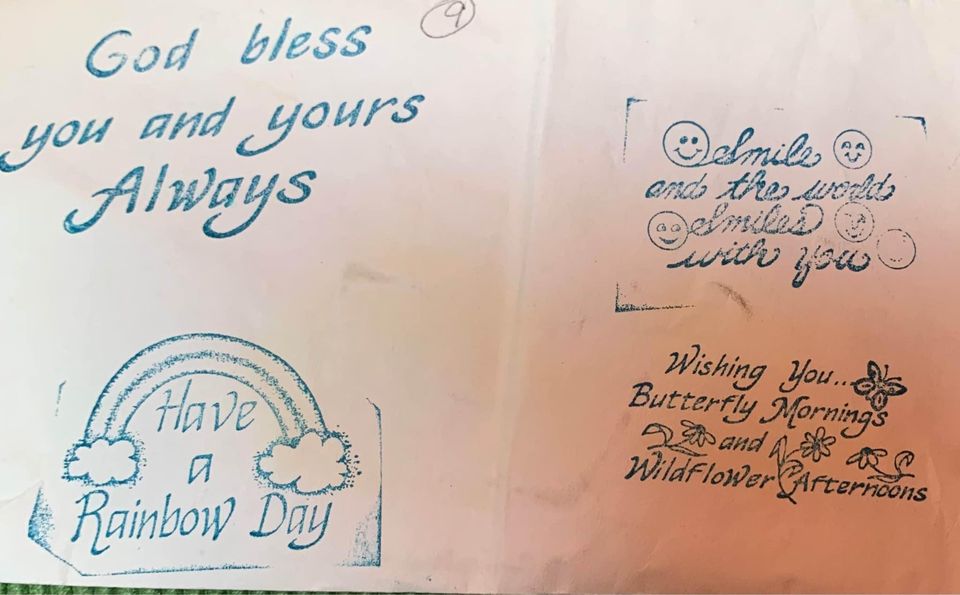 9
God bless
you and yours
Always
Smile
and the world
Smiles
with you
Have
a
Rainbow Day
Wishing You...
Butterfly Mornings
and
Wildflower Afternoons